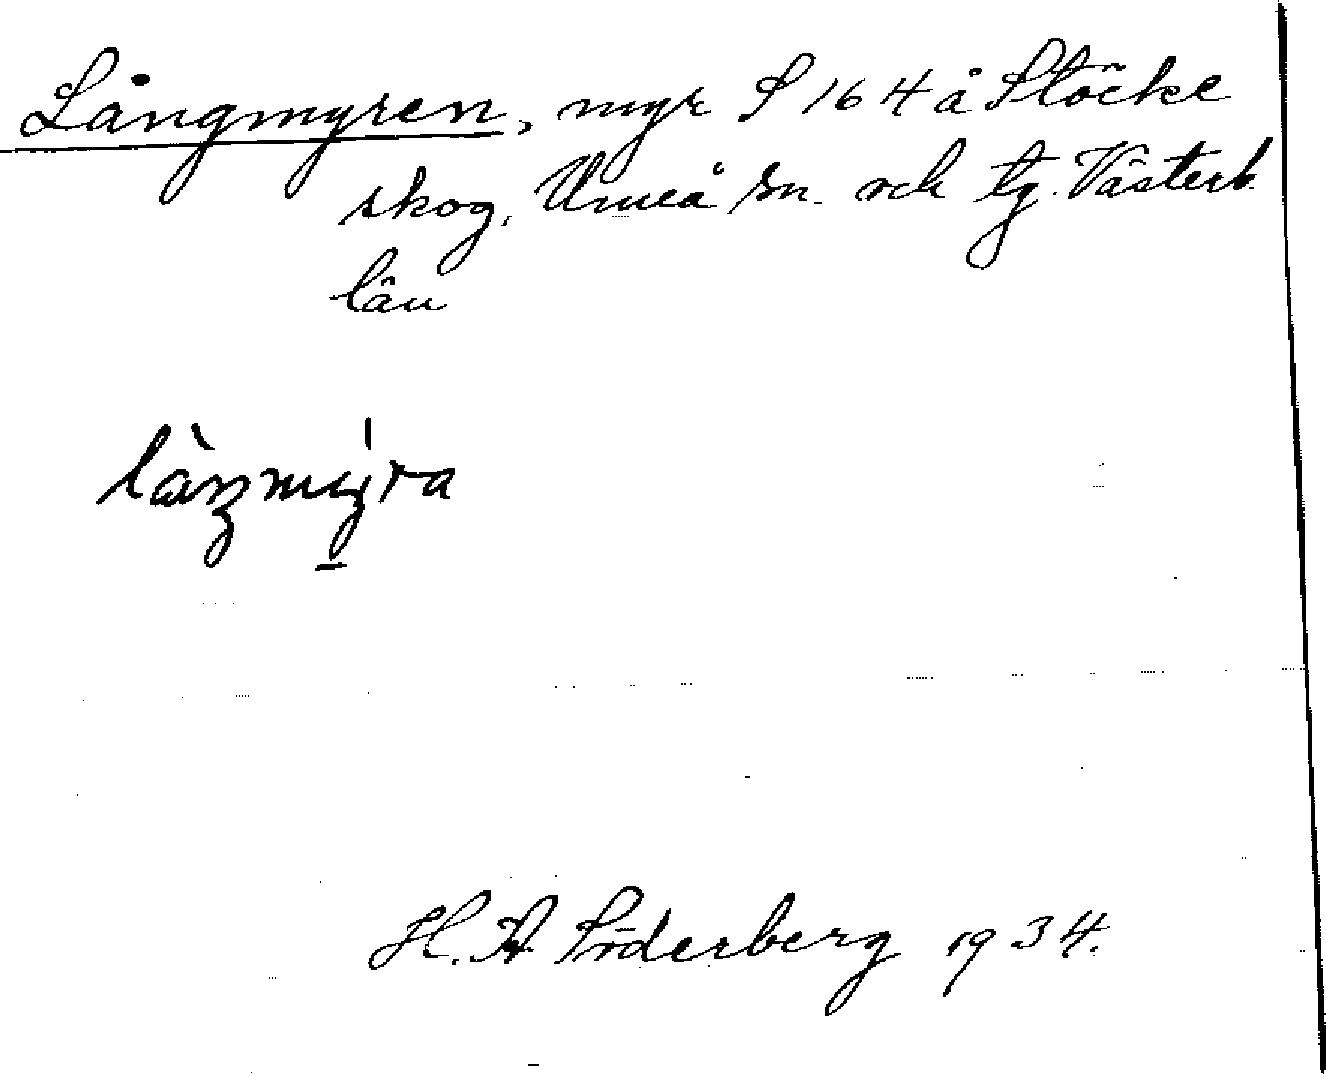 Långmyren, myr S 164 å Stöcke
skog, Umeå sn. och tg. Västerb.
län
làŋmýra
H. A Söderberg 1934.